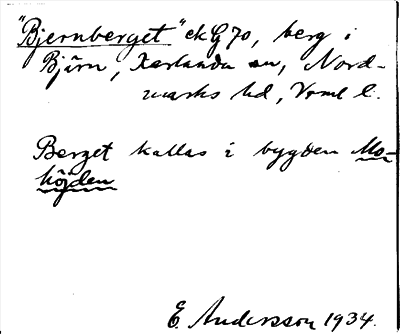 "Bjernberget" ek G 70, berg i
Bjärn, Karlanda sn, Nord-
marks hd, Vrml l.
Berget kallas i bygden Mo-
höjden
E. Andersson 1934.